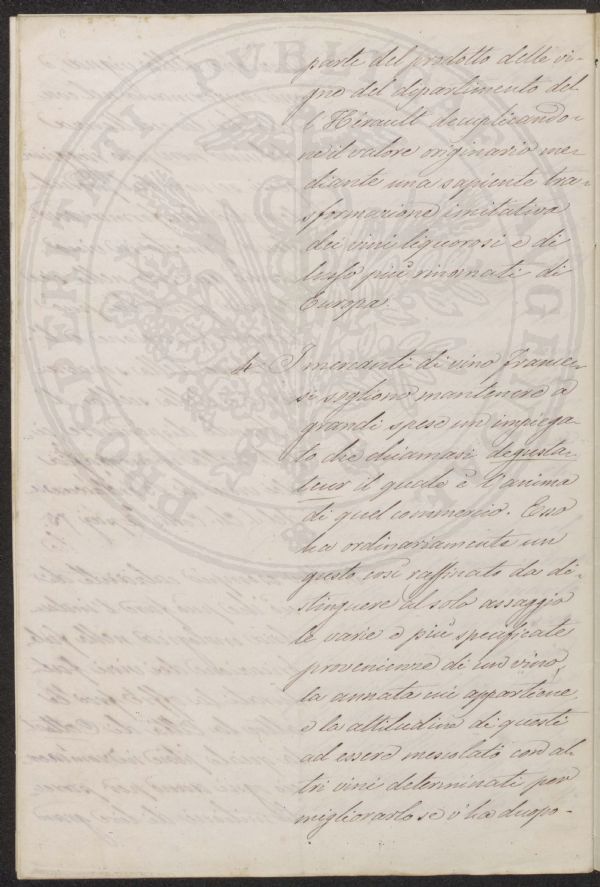 parte del prodotto delle vi-
gne del dipartimento del
l'Hérault decuplicando-
ne il valore originario me-
diante una sapiente tra-
sformazione imitativa
dei vini liquorosi e di
lusso più rinomati di
Europa.
4. I mercanti di vino france-
si sogliono mantenere a
grandi spese un impiega-
to che chiamasi degusta-
teur il quale è l'anima
di quel commercio. Esso
ha ordinariamente un
gusto così raffinato da di-
stinguere al solo assaggio
le varie e più specificate
provenienze di un vino,
la annata cui appartiene
e la attitudine di questi
ad essere mescolato con al-
tri vini determinati per
migliorarlo se v'ha d'uopo-
PROSPERITATI PVBLICAE